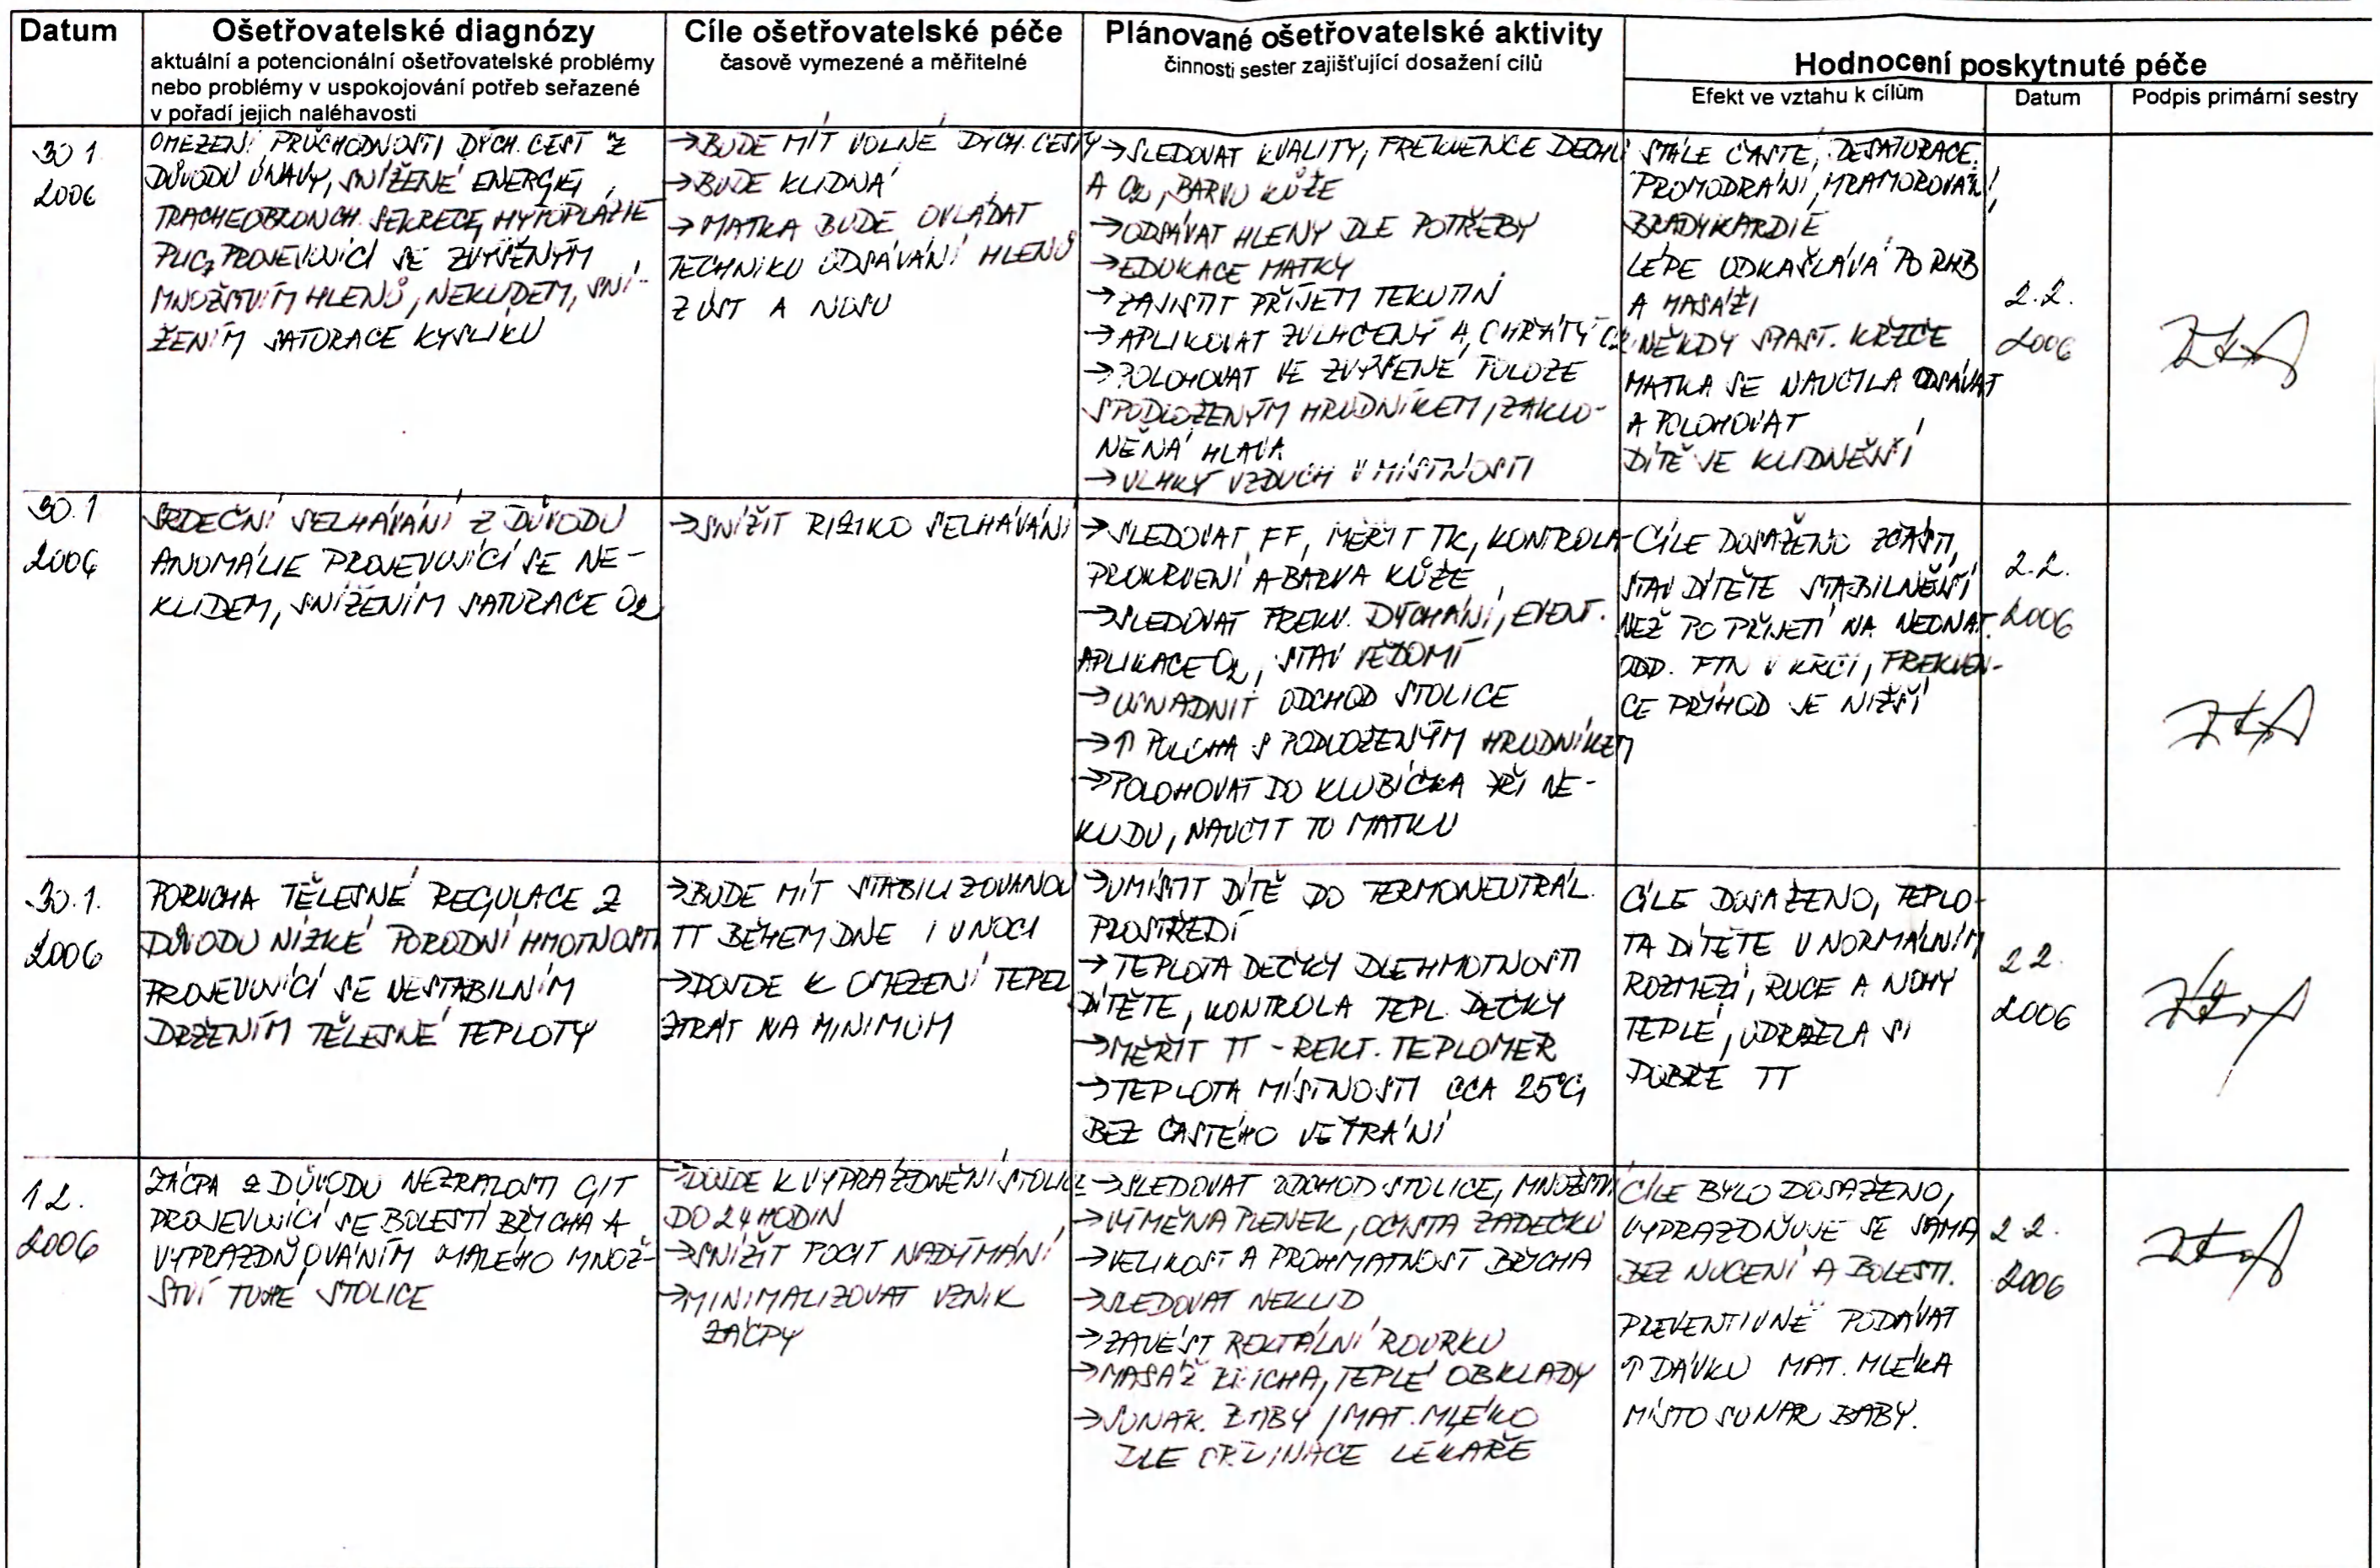 Datum
Ošetřovatelské diagnózy
aktuální a potencionální ošetřovatelské problémy
nebo problémy v uspokojování potřeb seřazené
v pořadí jejich naléhavosti
Cíle ošetřovatelské péče
časově vymezené a měřitelné
Plánované ošetřovatelské aktivity
činnosti sester zajišťující dosažení cílů
Hodnocení poskytnuté péče
Efekt ve vztahu k cílům
Datum
Podpis primární sestry
30 1
2006
OMEZENÍ PRŮCHODNOSTI DÝCH. CEST Z
DŮVODU ÚNAVY, SNÍŽENÉ ENERGIE,
TRACHEOBRONCH. SEKRECE, HYPOPLAZIE
PLIC, PROJEVUJÍCÍ SE ZVÝŠENÝM
MNOŽSTVÍM HLENŮ, NEKLIDEM, SNÍ-
ŽENÍM SATURACE KYSLÍKU
→ BUDE MÍT VOLNÉ DÝCH. CESTY
→ BUDE KLIDNÁ
→ MATKA BUDE OVLÁDAT
TECHNIKU ODSÁVÁNÍ HLENŮ
Z ÚST A NOSU
→ SLEDOVAT KVALITY, FREKVENCE DECHU
A O2, BARVU KŮŽE
→ ODSÁVAT HLENY DLE POTŘEBY
→ EDUKACE MATKY
→ ZAJISTIT PŘÍJEM TEKUTIN
→ APLIKOVAT ZVLHČENÝ A OHŘÁTÝ O2
→ POLOHOVAT VE ZVÝŠENÉ POLOZE
S PODLOŽENÝM HRUDNÍKEM, ZAKLO-
NĚNÁ HLAVA
→ VLHKÝ VZDUCH V MÍSTNOSTI
STÁLE ČASTÉ, DESATURACE.
PROMODRÁNÍ, MRAMOROVÁNÍ,
BRADYKARDIE
LÉPE ODKAŠLÁVÁ PO RHB
A MASÁŽI
NĚKDY SPAST. KŘEČE
MATKA SE NAUČILA ODSÁVAT
A POLOHOVAT
DÍTĚ JE KLIDNĚJŠÍ
2.2.
2006
30.1
2006
SRDEČNÍ SELHÁVÁNÍ Z DŮVODU
ANOMÁLIE PROJEVUJÍCÍ SE NE-
KLIDEM, SNÍŽENÍM SATURACE O2
→ SNÍŽIT RIZIKO SELHÁVÁNÍ
→ SLEDOVAT FF, MĚŘIT TK, KONTROLA
PROKRVENÍ A BARVA KŮŽE
→ SLEDOVAT FREKV. DÝCHÁNÍ, EVENT.
APLIKACE O2, STAV VĚDOMÍ
→ USNADNIT ODCHOD STOLICE
→ ↑ POLOHA S PODLOŽENÝM HRUDNÍKEM
→ POLOHOVAT DO KLUBÍČKA PŘI NE-
KLIDU, NAUČIT TO MATKU
- CÍLE DOSAŽENO ZČÁSTI,
STAV DÍTĚTE STABILNĚJŠÍ
NEŽ PO PŘIJETÍ NA NEONAT.
ODD. FTN V KRČI, FREKVEN-
CE PŘÍHOD JE NIŽŠÍ
2.2.
2006
30.1.
2006
PORUCHA TĚLESNÉ REGULACE Z
DŮVODU NÍZKÉ PORODNÍ HMOTNOSTI
PROJEVUJÍCÍ SE NESTABILNÍM
DRŽENÍM TĚLESNÉ TEPLOTY
→ BUDE MÍT STABILIZOVANOU
TT BĚHEM DNE I V NOCI
→ DOJDE K OMEZENÍ TEPEL
ZTRÁT NA MINIMUM
→ UMÍSTIT DÍTĚ DO TERMONEUTRÁL.
PROSTŘEDÍ
→ TEPLOTA DEČKY DLE HMOTNOSTI
DÍTĚTE, KONTROLA TEPL. DEČKY
→ MĚŘIT TT - REKT. TEPLOMĚR
→ TEPLOTA MÍSTNOSTI CCA 25°C,
BEZ ČASTÉHO VĚTRÁNÍ
CÍLE DOSAŽENO, TEPLO-
TA DÍTĚTE V NORMÁLNÍM
ROZMEZÍ, RUCE A NOHY
TEPLÉ, UDRŽELA SI
DOBŘE TT
2 2.
2006
1 2.
2006
ZÁCPA Z DŮVODU NEZRALOSTI GIT
PROJEVUJÍCÍ SE BOLESTÍ BŘICHA A
VYPRAZDŇOVÁNÍM MALÉHO MNOŽ-
STVÍ TUHÉ STOLICE
→ DOJDE K VYPRÁZDNĚNÍ STOLICE
DO 24 HODIN
→ SNÍŽIT POCIT NADÝMÁNÍ
→ MINIMALIZOVAT VZNIK
ZÁCPY
→ SLEDOVAT ODCHOD STOLICE, MNOŽSTVÍ
→ VÝMĚNA PLENEK, OČISTA ZADEČKU
→ VELIKOST A PROHMATNOST BŘICHA
→ SLEDOVAT NEKLID
→ ZAVÉST REKTÁLNÍ ROURKU
→ MASÁŽ BŘICHA, TEPLÉ OBKLADY
→ SUNAR. BABY / MAT. MLÉKO
DLE ORDINACE LÉKAŘE
CÍLE BYLO DOSAŽENO,
VYPRAZDŇUJE SE SAMA
BEZ NUCENÍ A BOLESTI.
PREVENTIVNĚ PODÁVAT
↑ DÁVKU MAT. MLÉKA
MÍSTO SUNAR BABY.
2 2.
2006